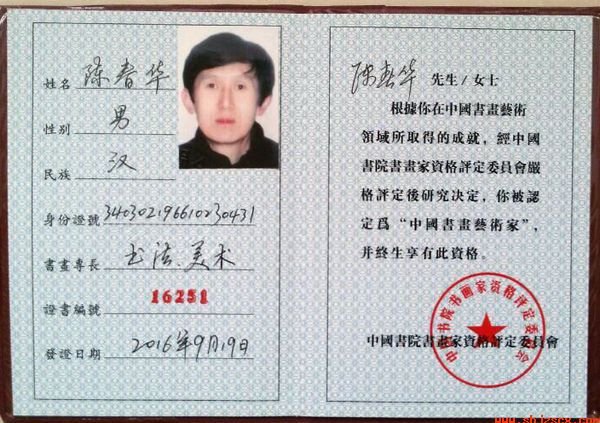 姓名 陈春华
性别 男
民族 汉
身份證號 340302196610230431
書畫專長 书法.美术
證書編號 16251
發證日期 2016年9月19日
陈春华 先生/女士
根據你在中國書畫藝術
領域所取得的成就，經中國
書院書畫家資格評定委員會嚴
格評定後研究决定，你被認
定爲“中國書畫藝術家”，
并終生享有此資格。
中國書院書畫家資格評定委員會
中国书院书画家资格评定委员会